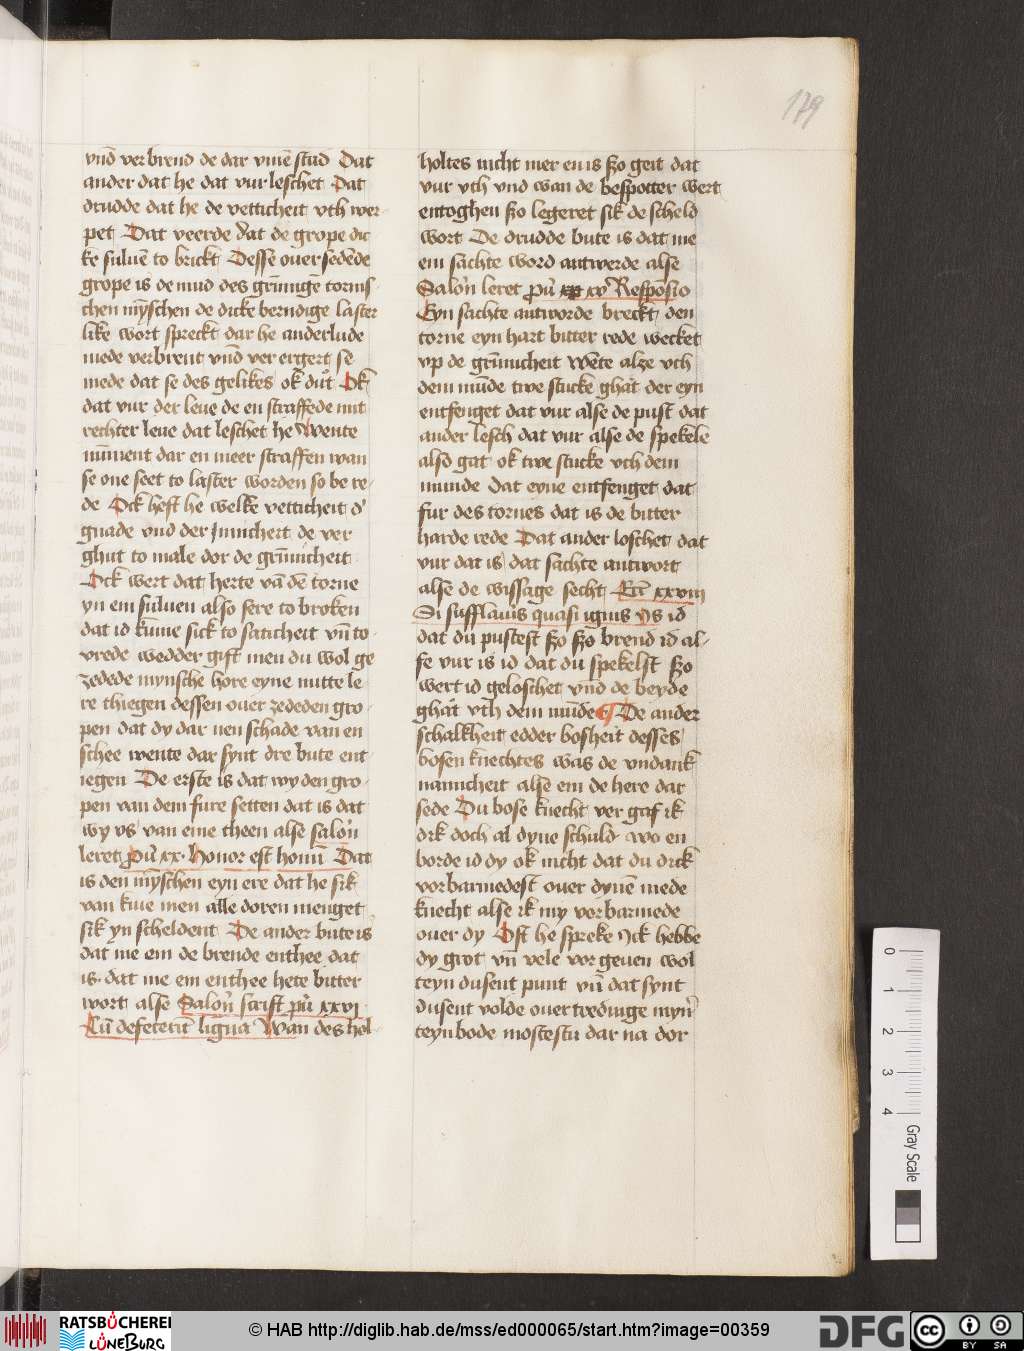 179
vnd verbrend de dar vmē stād Dat
ander dat he dat vur leschet Dat
drudde dat he de vetticheit vth wer
pet Dat veerde dat de grope dic
ke suluē to brickt Desse ouer sedēde
grope is de mud des grīmige torns
schen mȳschen de dicke berndige laster
like wort spreckt dar he anderlude
mede verbrent vnd ver ergert se
mede dat se des gelikes ok dūt Ok
dat vur der leue de en straffede mit
rechter leue dat leschet he Wente
nūment dar en meer straffen wan
se one seet to laster worden so be re
de Ock heft he welke vetticheit d'
gnade vnd der Innichert de ver
ghut to male dor de grīnicheit
Ock wert dat herte vā dē torne
yn em suluen also sere to broken
dat id kūme sick to saticheit vn̄ to
vrede wedder gift men du wol ge
zedede mynsche hore eyne nutte le
re thiegen dessen ouer zededen gro
pen dat dy dar nen schade van en
schee wente dar synt dre bute ent
iegen De erste is dat wy den gro
pen van dem fure setten dat is dat
wy vs van eme theen alse salon̄
leret pū xx. honor est homī Dat
is den mȳschen eyn ere dat he sik
van kiue men alle doren menget
sik yn scheldent De ander bute is
dat me em de brende enthee dat
is dat me em enthee hete bitter
wort alse Salon̄ scrift pū xxvi
Cū defecerīt ligna Wan des hol
holtes nicht mer en is szo geit dat
vur vth vnd wan de bespotter wert
entoghen szo legeret sik de scheld
wort De drudde bute is dat me
em sachte word antwerde alse
Salon̄ leret pū xv Responsio
Eyn sachte antworde breckt den
torne eyn hart bitter rede wecket
vp de grīnicheit Wēte alze vth
dem mūde twe stucke ghāt der eyn
entfenget dat vur alse de pust dat
ander lesch dat vur alse de spekele
also gat ok twe stucke vth dem
munde dat eyne entfenget dat
fur des tornes dat is de bitter
harde rede Dat ander loschet dat
vur dat is dat sachte antwort
alse de wissage secht Ecc̄ xxviij
Si sufflauīs quasi ignis ys id
dat du pustest szo szo brend id al
se vur is id dat du spekelst szo
wert id geloschet vnd de beyde
ghāt vth dem mūde De ander
schalkheit edder bosheit desses
bosen knechtes was de vndank
namicheit alse em de here dar
sede Du bose knecht ver gaf ik
dik doch al dyne schuld wo en
borde id dy ok nicht dat du dick
vorbarmedest ouer dynē mede
knecht alse ik my vorbarmede
ouer dy Oft he spreke Ick hebbe
dy grot vn̄ vele vorgeuen wol
teyn dusent punt vn̄ dat synt
dusent volde ouertredinge myn̄
teyn bode mostestu dar na dor
0 1 2 3 4 Gray Scale
RATSBÜCHEREI LÜNEBURG
© HAB http://diglib.hab.de/mss/ed000065/start.htm?image=00359
DFG
cc BY SA